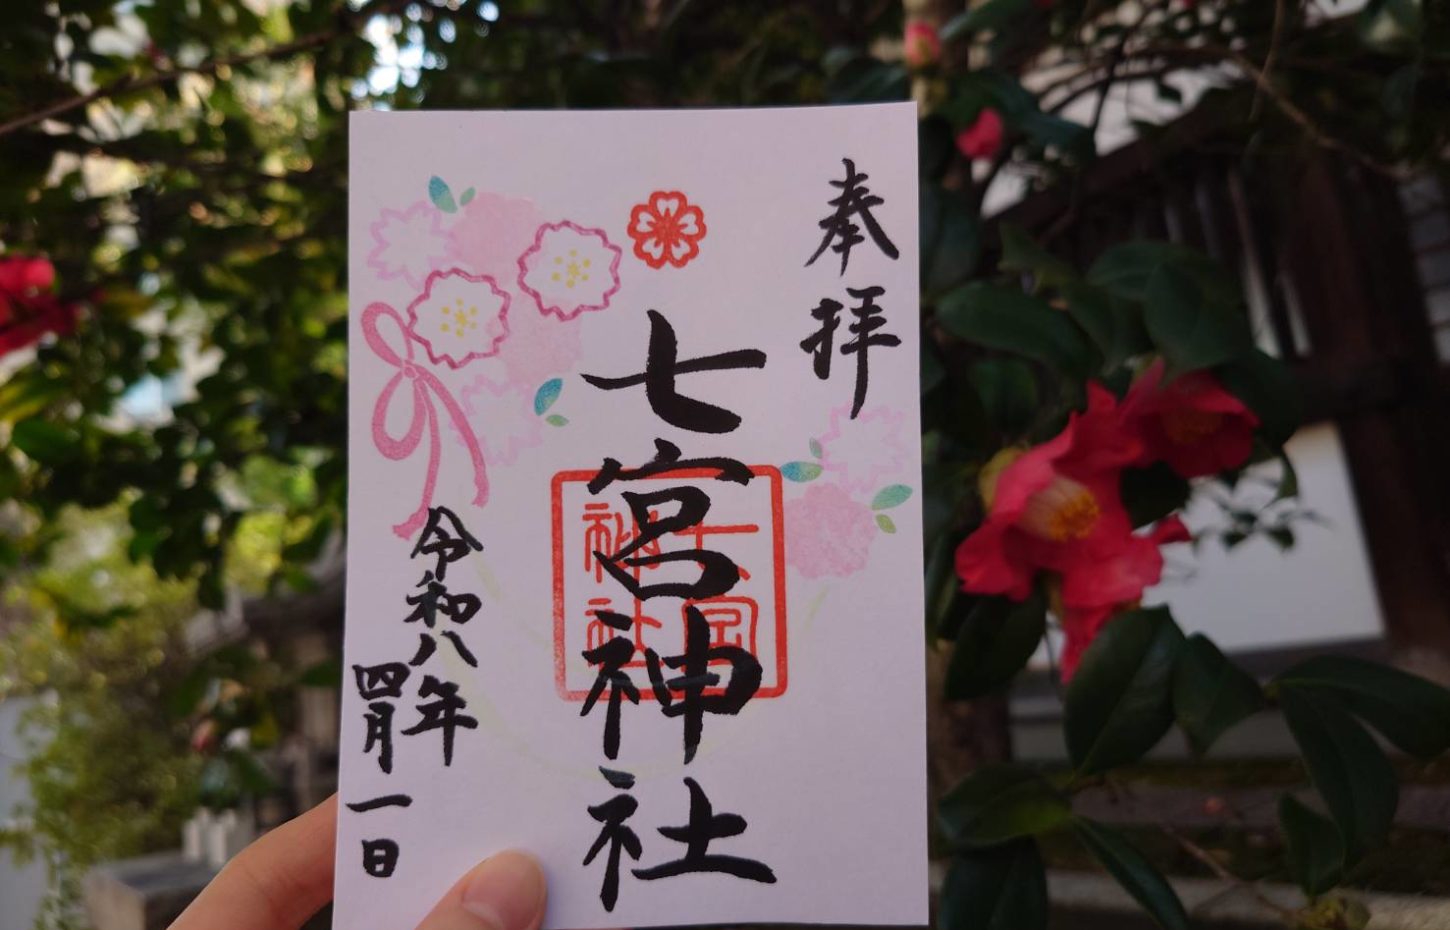 奉拝
七宮神社
七宮
神社
令和八年
四月一日